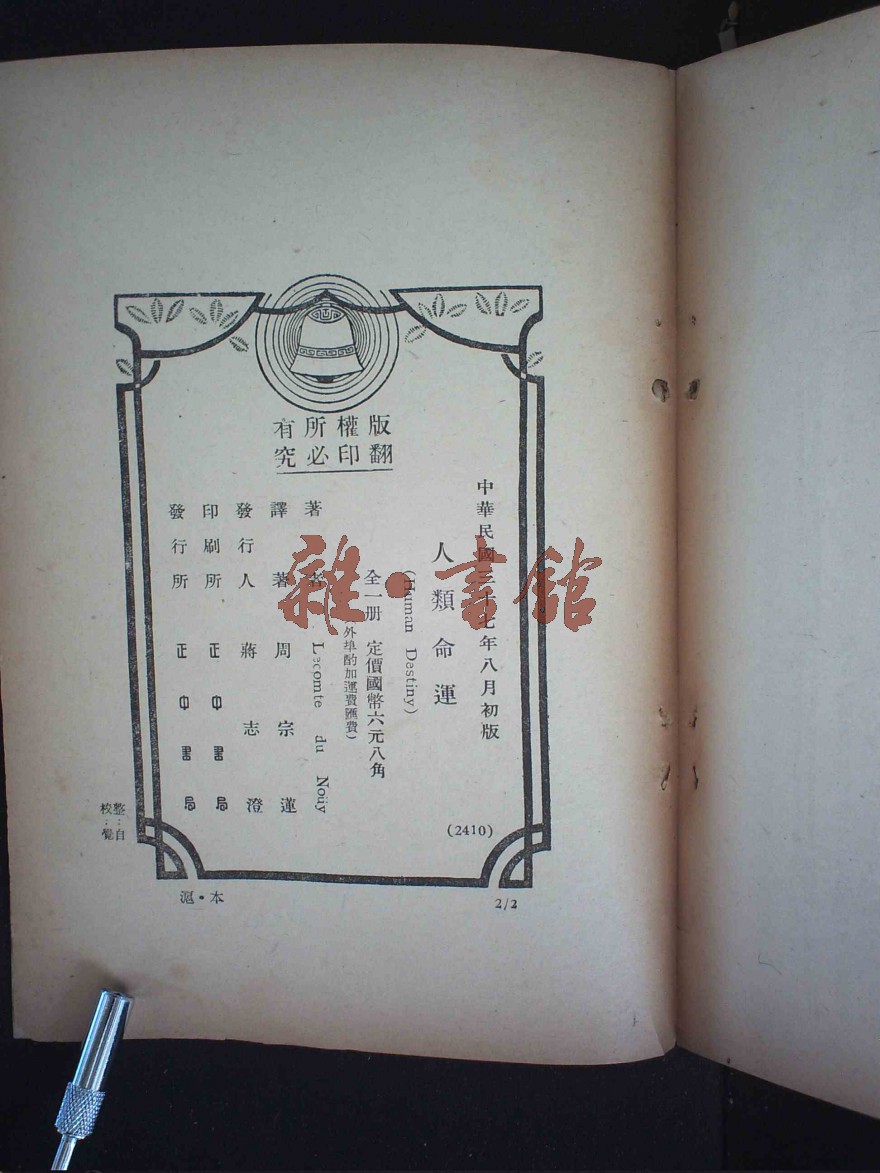 版權所有
翻印必究
中華民國三十七年八月初版
人類命運
(Human Destiny)
全一册 定價國幣六元八角
外埠酌加運費匯費)
著者 Lecomte du Noüy
譯著 周宗蓮
發行人 蔣志澄
印刷所 正中書局
發行所 正中書局
(2410)
整:自
校:覺
滬•本
2/2
雜·書館